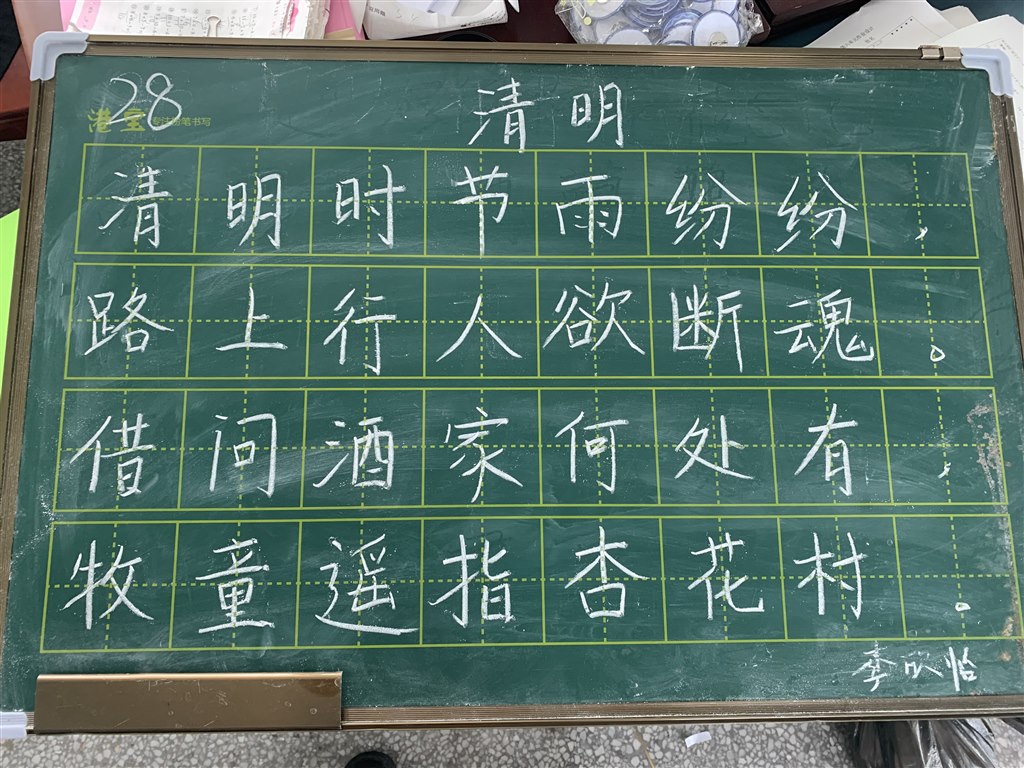 28
港宝 专注粉笔书写
清明
清明时节雨纷纷，
路上行人欲断魂。
借问酒家何处有，
牧童遥指杏花村。